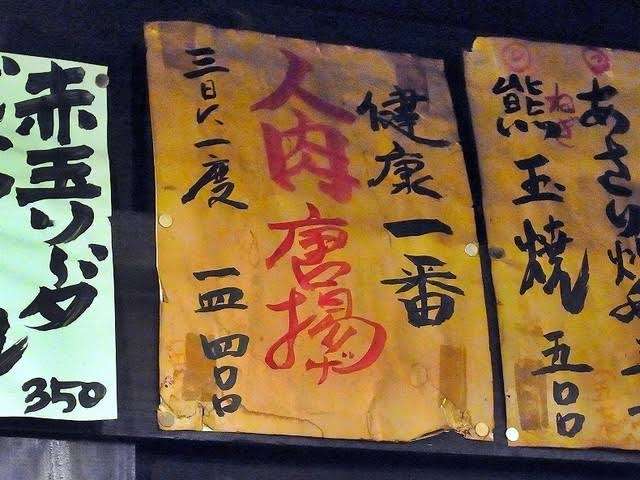 あさり
ねぎ
熊玉焼 五〇〇
健康一番
人肉唐揚
三日に一度 一皿 四〇〇
赤玉ソーダ
350